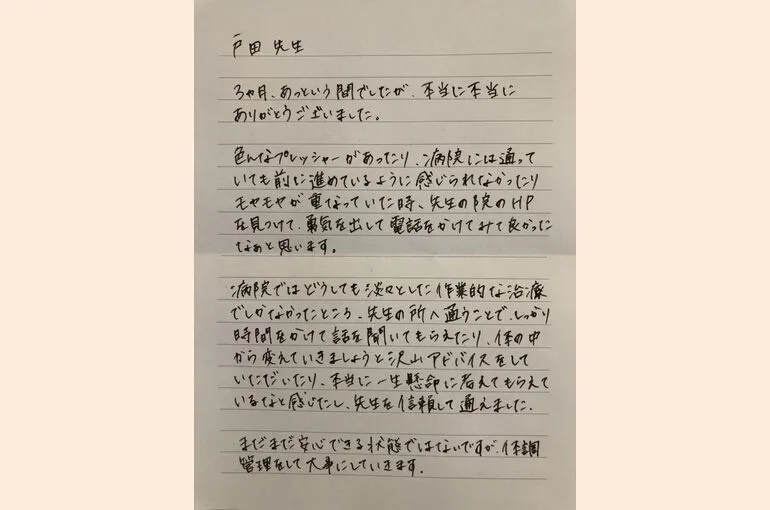 戸田 先生
3ヶ月、あっという間でしたが、本当に本当に
ありがとうございました。
色んなプレッシャーがあったり、病院には通って
いても前に進めているように感じられなかったり
モヤモヤが重なっていた時、先生の院のHP
を見つけて、勇気を出して電話をかけてみて良かった
なぁと思います。
病院ではどうしても淡々とした作業的な治療
でしかなかったところ、先生の所へ通うことで、しっかり
時間をかけて話を聞いてもらえたり、体の中
から変えていきましょうと沢山アドバイスをして
いただいたり、本当に一生懸命に考えてもらえて
いるなと感じたし、先生を信頼して通えました。
まだまだ安心できる状態ではないですが、体調
管理をして大事にしていきます。